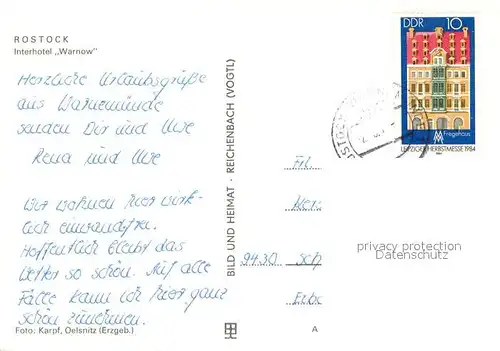 ROSTOCK
Interhotel „Warnow"
Herzliche Urlaubsgrüße
aus Warnemünde
senden Dir und Uwe
Rena und Uwe
Wir wohnen hier wirk-
lich einwandfrei.
Hoffentlich bleibt das
Wetter so schön. Auf alle
Fälle kann ich hier ganz
schön zunehmen.
Foto: Karpf, Oelsnitz (Erzgeb.)
BILD UND HEIMAT · REICHENBACH (VOGTL)
DDR 10
Fregehaus
LEIPZIGER HERBSTMESSE 1984
9430
A
privacy protection
Datenschutz